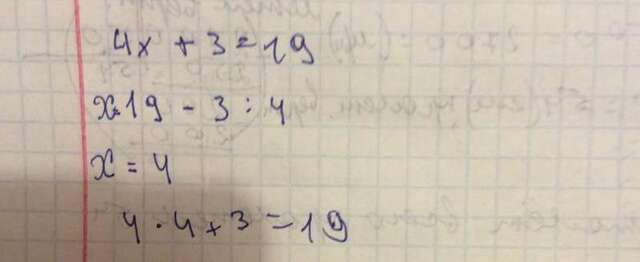 4x + 3 = 19
x=19 - 3 : 4
x = 4
4 · 4 + 3 = 19